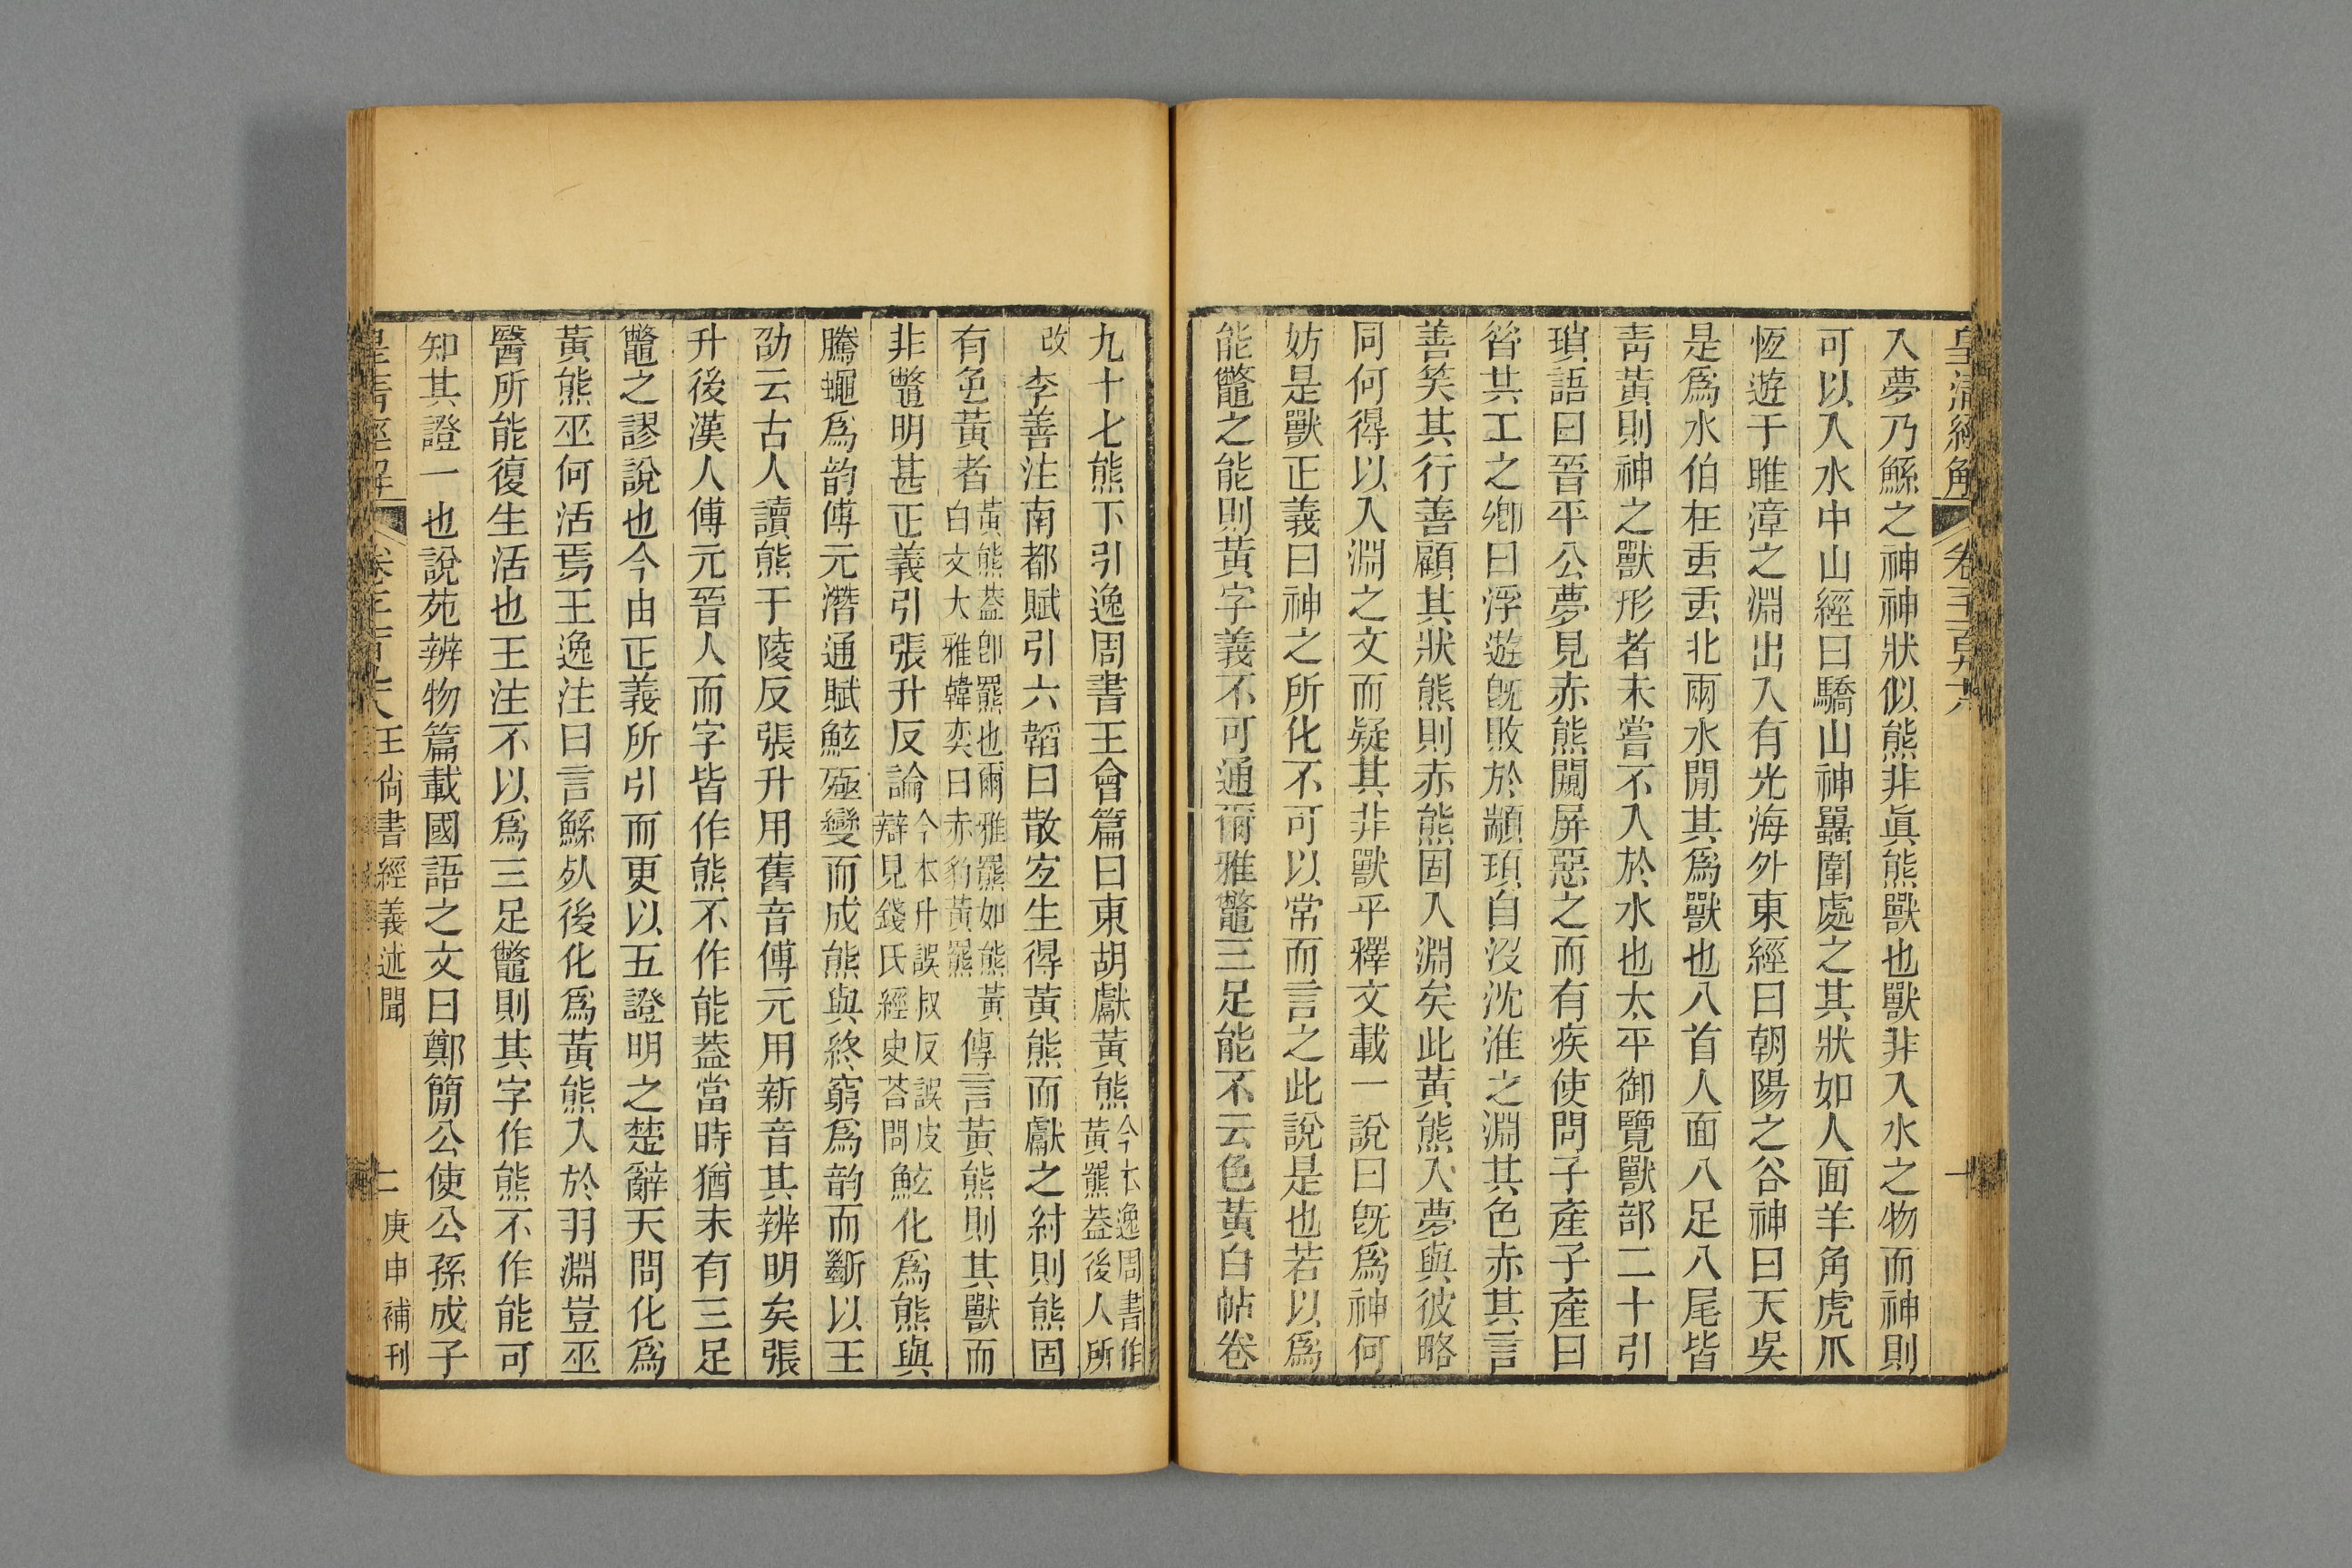 皇清經解 卷
入夢乃鯀之神神狀似熊非眞熊獸也獸非入水之物而神則
可以入水中山經曰驕山神䰠圍處之其狀如人面羊角虎爪
恆遊于雎漳之淵出入有光海外東經曰朝陽之谷神曰天吳
是爲水伯在䖝䖝北兩水閒其爲獸也八首人面八足八尾皆
靑黃則神之獸形者未嘗不入於水也太平御覽獸部二十引
瑣語曰晉平公夢見赤熊闚屏惡之而有疾使問子產子產曰
昝共工之卿曰浮遊旣敗於顓頊自沒沈淮之淵其色赤其言
善笑其行善顧其狀熊則赤熊固入淵矣此黃熊入夢與彼略
同何得以入淵之文而疑其非獸乎釋文載一說曰旣爲神何
妨是獸正義曰神之所化不可以常而言之此說是也若以爲
能鼈之能則黃字義不可通爾雅鼈三足能不云色黃白帖卷
九十七熊下引逸周書王會篇曰東胡獻黃熊今本逸周書作黃羆葢後人所
改李善注南都賦引六韜曰散宐生得黃熊而獻之紂則熊固
有色黃者黃熊葢卽羆也爾雅羆如熊黃白文大雅韓奕曰赤豹黃羆傳言黃熊則其獸而
非鼈明甚正義引張升反論今本升誤叔反誤皮辯見錢氏經史荅問鮌化爲熊與
騰蠅爲韵傅元潛通賦鮌殛變而成熊與終窮爲韵而斷以王
劭云古人讀熊于陵反張升用舊音傅元用新音其辨明矣張
升後漢人傅元晉人而字皆作熊不作能葢當時猶未有三足
鼈之謬說也今由正義所引而更以五證明之楚辭天問化爲
黃熊巫何活焉王逸注曰言鯀㱙後化爲黃熊入於羽淵豈巫
醫所能復生活也王注不以爲三足鼈則其字作熊不作能可
知其證一也說苑辨物篇載國語之文曰鄭簡公使公孫成子
皇清經解 卷 王尙書經義述聞 二 庚申補刊